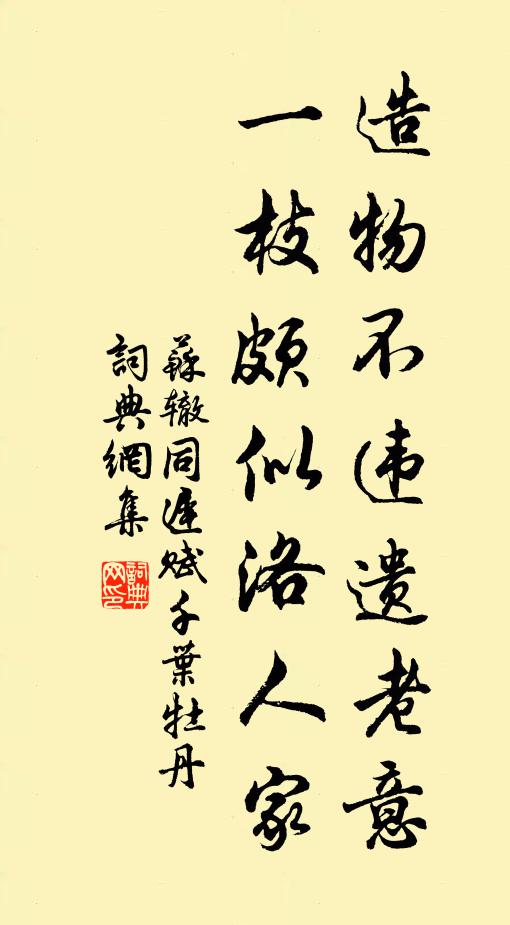 造物不违遗老意
一枝颇似洛人家
蘇辙同遲赋千葉牡丹
詞典網集
詞典网印